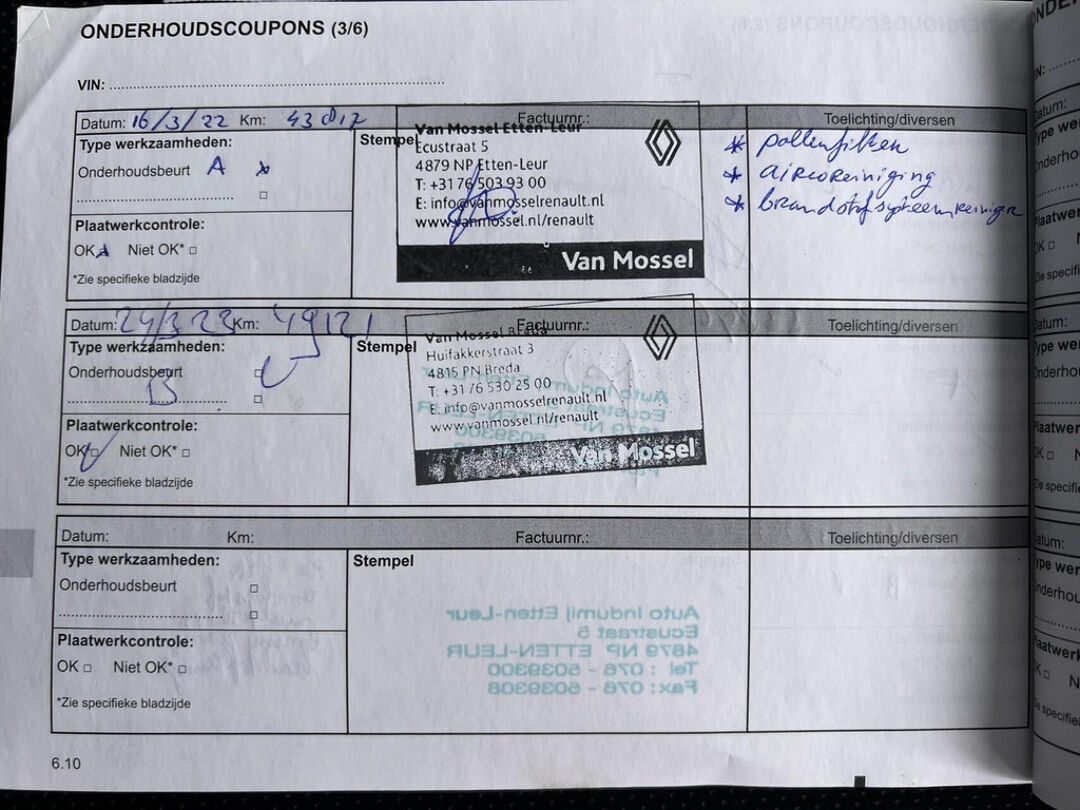 ONDERHOUDSCOUPONS (3/6)
VIN:
Datum: 16/3/22 Km: 43 017 Factuurnr.: Toelichting/diversen
Type werkzaamheden:
Onderhoudsbeurt A
Plaatwerkcontrole:
OK Niet OK*
*Zie specifieke bladzijde
Stempel
Van Mossel Etten-Leur
Ecustraat 5
4879 NP Etten-Leur
T: +31 76 503 93 00
E: info@vanmosselrenault.nl
www.vanmossel.nl/renault
Van Mossel
* pollenfilter
* aircoreiniging
* brandstofsysteemreiniger
Datum: 24/3 23 Km: 49121 Factuurnr.: Toelichting/diversen
Type werkzaamheden:
Onderhoudsbeurt
B
Plaatwerkcontrole:
OK Niet OK*
*Zie specifieke bladzijde
Stempel
Van Mossel Breda
Huifakkerstraat 3
4815 PN Breda
T: +31 76 530 25 00
E: info@vanmosselrenault.nl
www.vanmossel.nl/renault
Van Mossel
Datum: Km: Factuurnr.: Toelichting/diversen
Type werkzaamheden:
Onderhoudsbeurt
Plaatwerkcontrole:
OK Niet OK*
*Zie specifieke bladzijde
Stempel
Auto Indumij Etten-Leur
Ecustraat 5
4879 NP ETTEN-LEUR
Tel : 076 - 5039300
Fax: 076 - 5039308
6.10